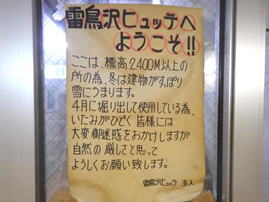 雷鳥沢ヒュッテへ
ようこそ!!
ここは、標高2400M以上の
所の為、冬は建物がすっぽり
雪にうまります。
4月に掘り出して使用している為、
いたみがひどく皆様には
大変御迷惑をおかけしますが
自然の厳しさと思って
よろしくお願い致します。
雷鳥沢ヒュッテ 主人